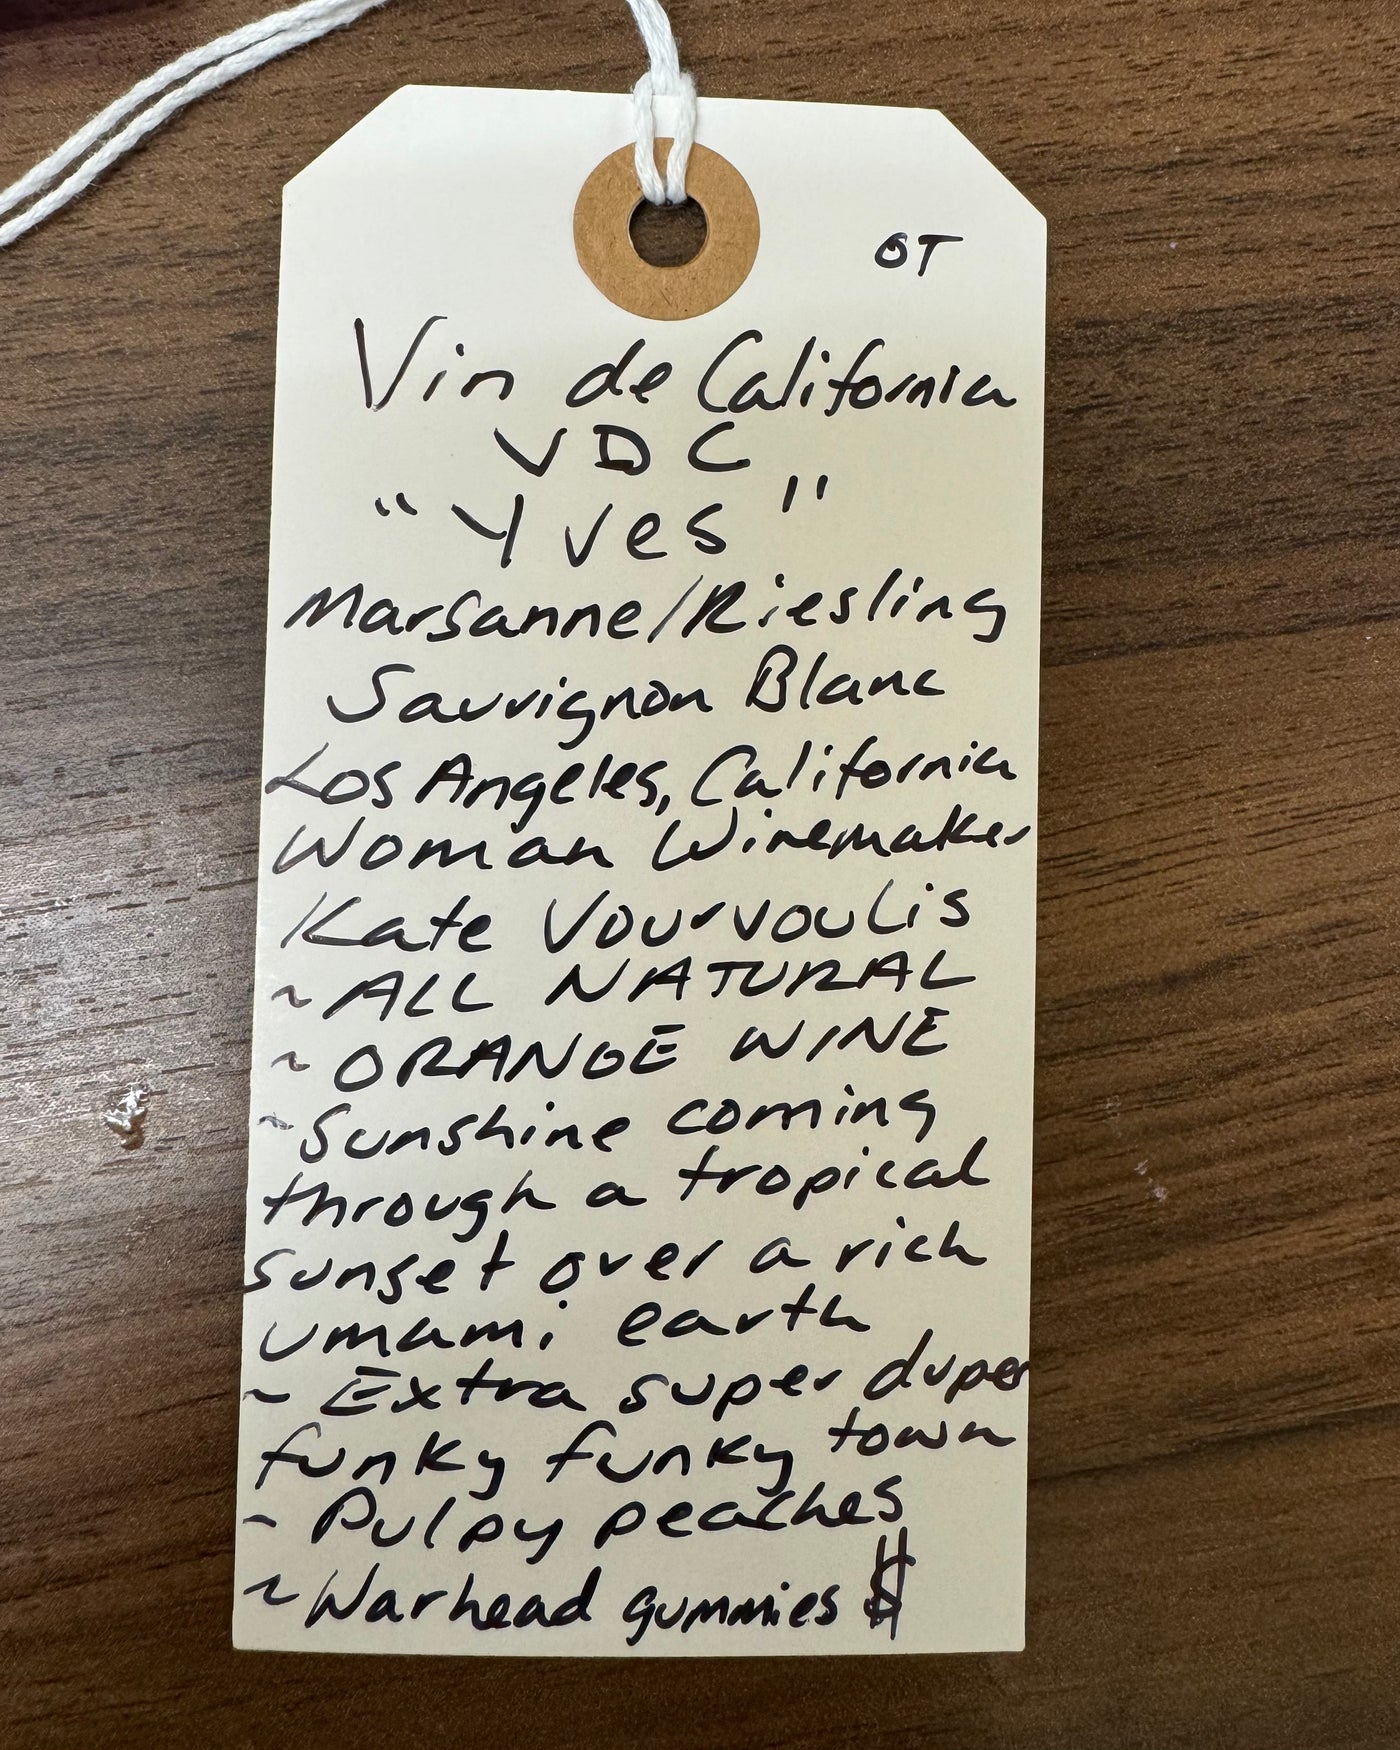 OT
Vin de California
VDC
"Yves"
Marsanne/Riesling
Sauvignon Blanc
Los Angeles, California
Woman Winemaker
Kate Vourvoulis
~ALL NATURAL
~ORANGE WINE
~Sunshine coming
through a tropical
sunset over a rich
umami earth
~ Extra super duper
funky funky town
~ Pulpy peaches
~Warhead gummies $